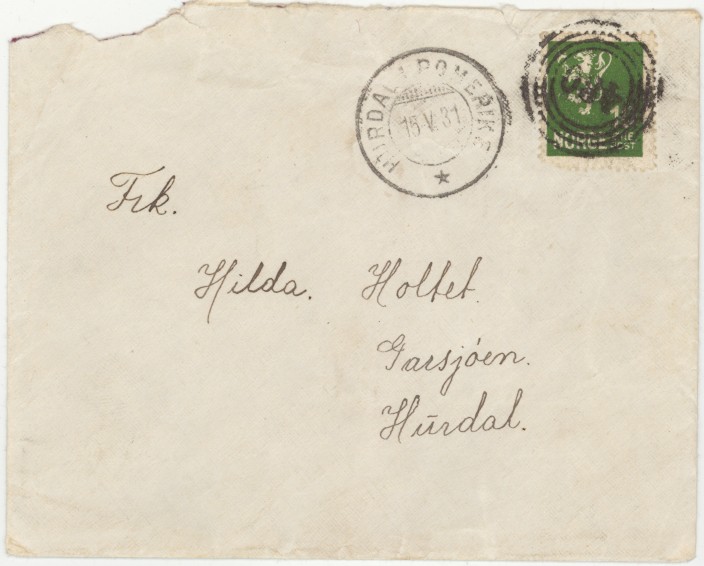 HURDAL I ROMERIKE
15.V.31
NORGE
Frk.
Hilda. Holtet.
Garsjóen.
Hūrdal.